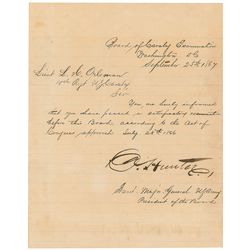 Board of Cavalry Examination
Washington D.C.
September 25th 1867
Lieut L. H. Orleman
10th Regt U.S. Cavalry
Sir
You are hereby informed
that you have passed a satisfactory
before this Board according to the Act of
Congress approved July 28th 1866
D. Hunter
Major General U.S. Army
President of the Board